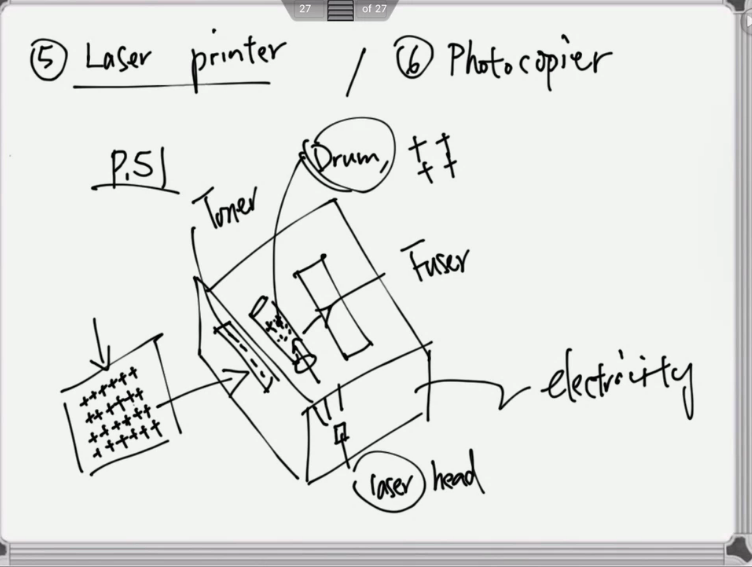 27 of 27
⑤ Laser printer / ⑥ Photocopier
P.51
Drum
++
++
Toner
Fuser
++++++
++++++
++++++
++++++
electricity
laser head